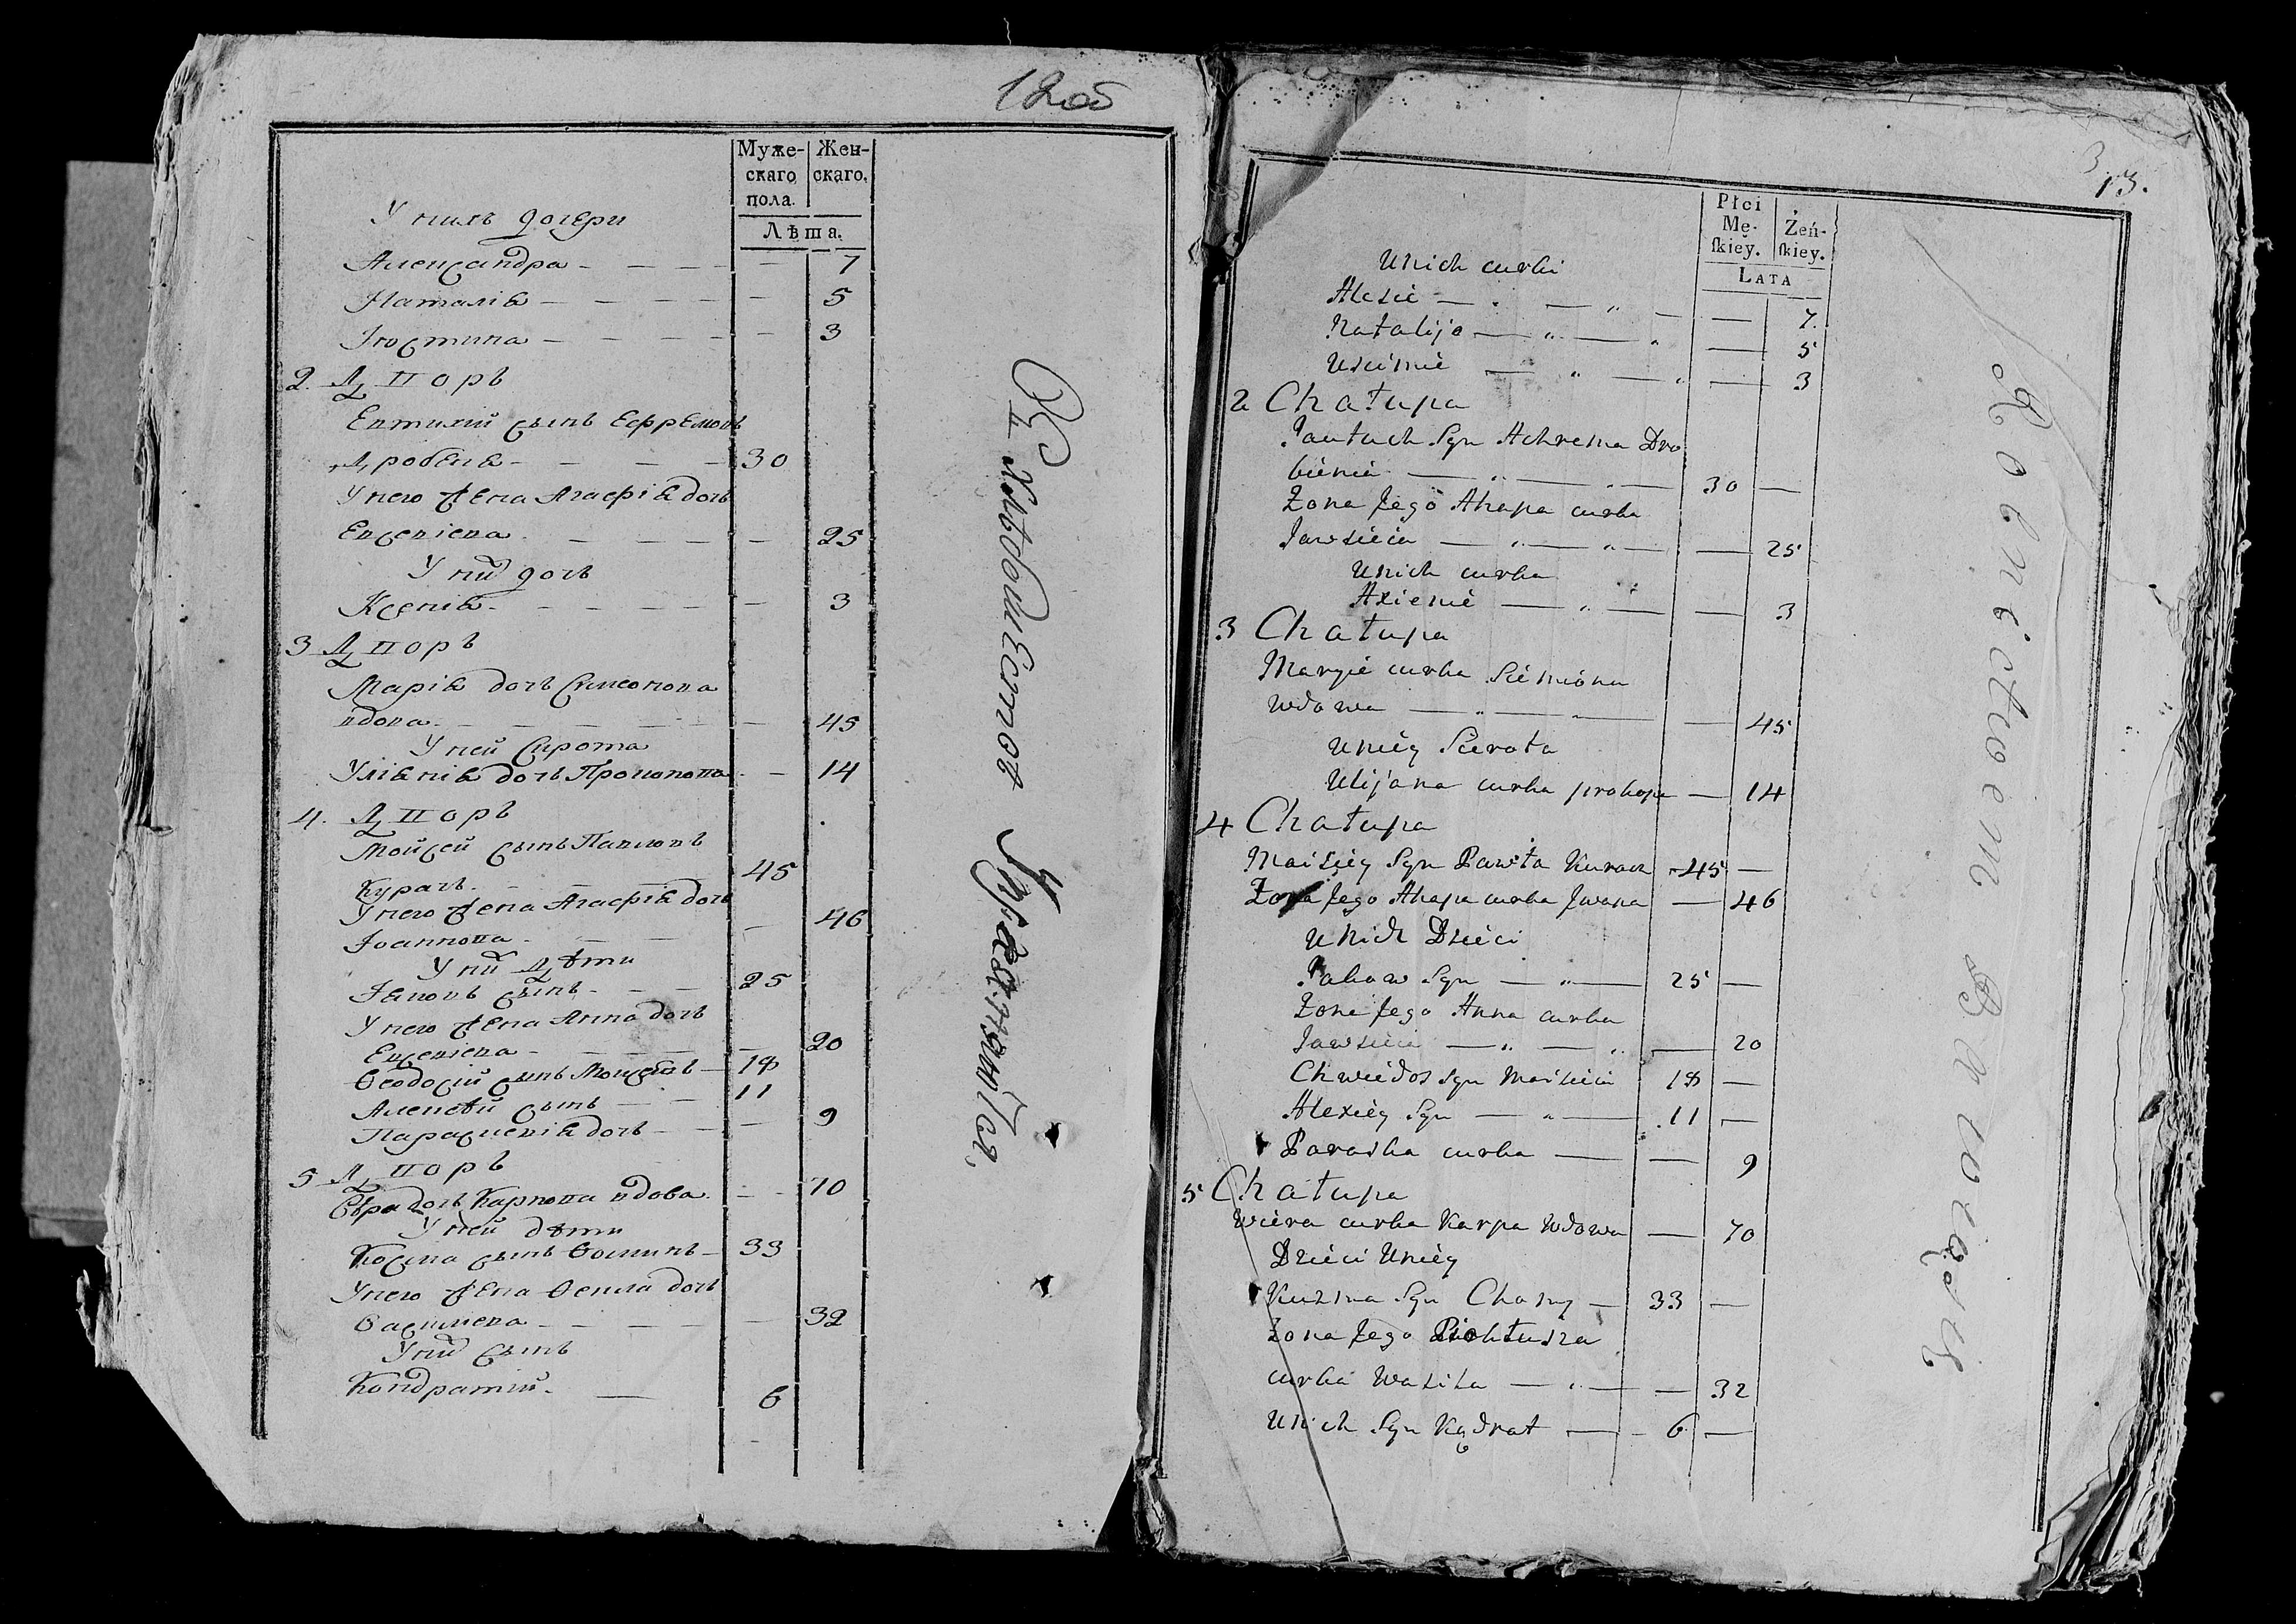 12об
Муже- Жен-
скаго скаго.
пола.
Лѣта.
У нихъ дочери
Александра - - - - - 7
Наталія - - - - - 5
Іюстина - - - - - 3
2. Дворъ
Евтихий сынъ Ефремовъ
Дробеня - - - - 30
У него жена Агафія дочь
Евсевіева - - - - - 25
У них дочь
Ксенія - - - - - 3
3 Дворъ
Марія дочь Симеонова
вдова - - - - - 45
У ней Сирота
Уліянія дочь Прокопова - - 14
4. Дворъ
Мойсей сынъ Павловъ
Курачъ - - - 45
У него жена Агафія дочь
Іоаннова - - - 46
У них Дѣти
Іаковъ сынъ - - - 25
У него жена Анна дочь
Евсевіева - - - - - 20
Ѳеодосій сынъ Мойсеевъ - 18
Алексѣй сынъ - - 11
Параскевія дочь - - - 9
5 Дворъ
Вѣра дочь Карпова вдова - - 70
У ней дѣти
Косма сынъ Ѳоминъ - 33
У него жена Ѳекла дочь
Василіева - - - - - 32
У них сынъ
Кондратій - — 6
3
13.
Płci
Mę- Żeń-
skiey. skiey.
LATA
Unich curki
Alesie — — — — 7.
Natalija — — — 5
Uscinie — — — 3
2 Chałupa
Jautuch Syn Achrema Dro
bienia — — — 30 —
Zona Jego Ahapa curka
Jawsieia — — — — 25
Unich curka
Axienie — — — 3
3 Chałupa
Maryie curka Siemiona
Wdowa — — — — 45
Uniey Sierota
Ulijana curka prokopa — 14
4 Chałupa
Maisiey Syn Pawła Kuracz - 45 —
Zona Jego Ahapa curka Jwana — 46
Unich Dzieci
Jakow Syn — — 25 —
Zona Jego Anna curka
Jawsieia — — — 20
Chwiedos Syn Maisieia 18 —
Alexiey Syn — — 11 —
Paraska curka — — 9
5 Chałupa
Wiera curka Karpa Wdowa — 70
Dzieci Uniey
Kuzma Syn Chomy — 33 —
Zona Jego
curka Wasila — — — 32
Unich Syn Kądrat — - 6 —